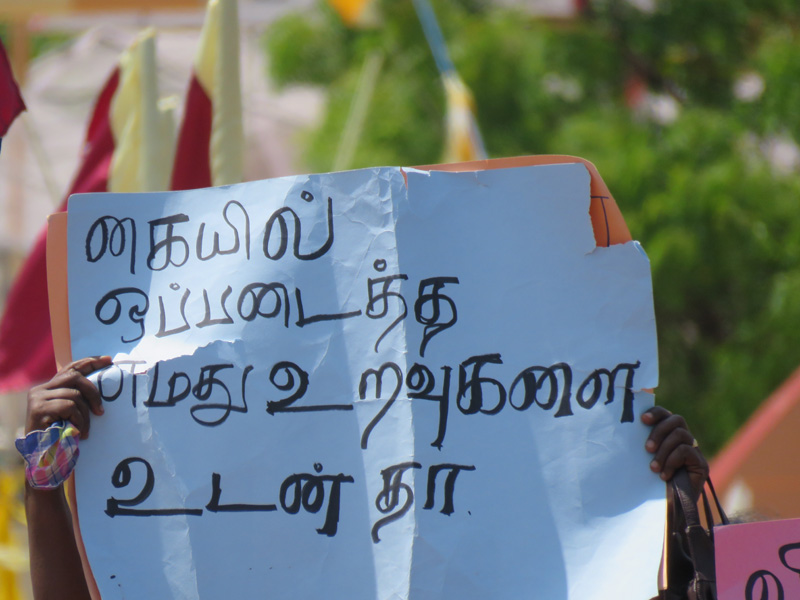 கையில்
ஒப்படைத்த
எமது உறவுகளை
உடன் தா.